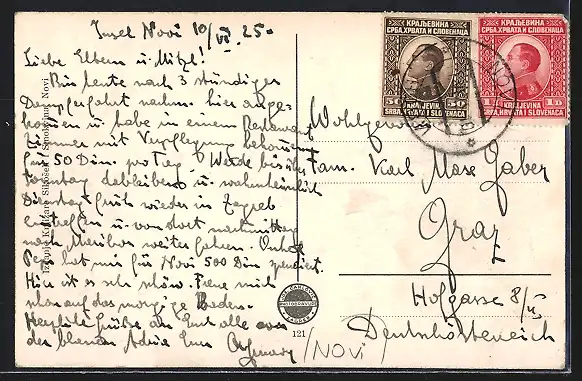 Insel Novi 10/VI. 25.
Liebe Eltern u. Mitzl!
Bin heute nach 3 stündiger
Dampferfahrt nachm. hier ange-
kommen u. habe in einem
Zimmer mit Verpflegung bekommen
für 50 Din. pro Tag. Werde bis
Sonntag dableiben u. wahrscheinlich
Dienstag früh wieder in Zagreb
eintreffen u. von dort nachmittag
nach Maribor weiter fahren. Onkel
hat mir für Novi 500 Din spendiert.
Hier ist es sehr schön. Freue mich
schon auf das morgige Baden.
Herzliche Grüße an Euch alle von
der blauen Adria Euer
/NOVI/
Izdanje Knjižare Smokvina, Novi
121
ZAGREB
КРАЉЕВИНА
СРБА, ХРВАТА И СЛОВЕНАЦА
50 50
KRALJEVINA
SRBA, HRVATA I SLOVENACA
КРАЉЕВИНА
СРБА, ХРВАТА И СЛОВЕНАЦА
1 1D
KRALJEVINA
SRBA, HRVATA I SLOVENACA
NOVI
Wohlgeboren
Fam. Karl Max Gaber
Graz
Hofgasse 8/II
Deutschösterreich